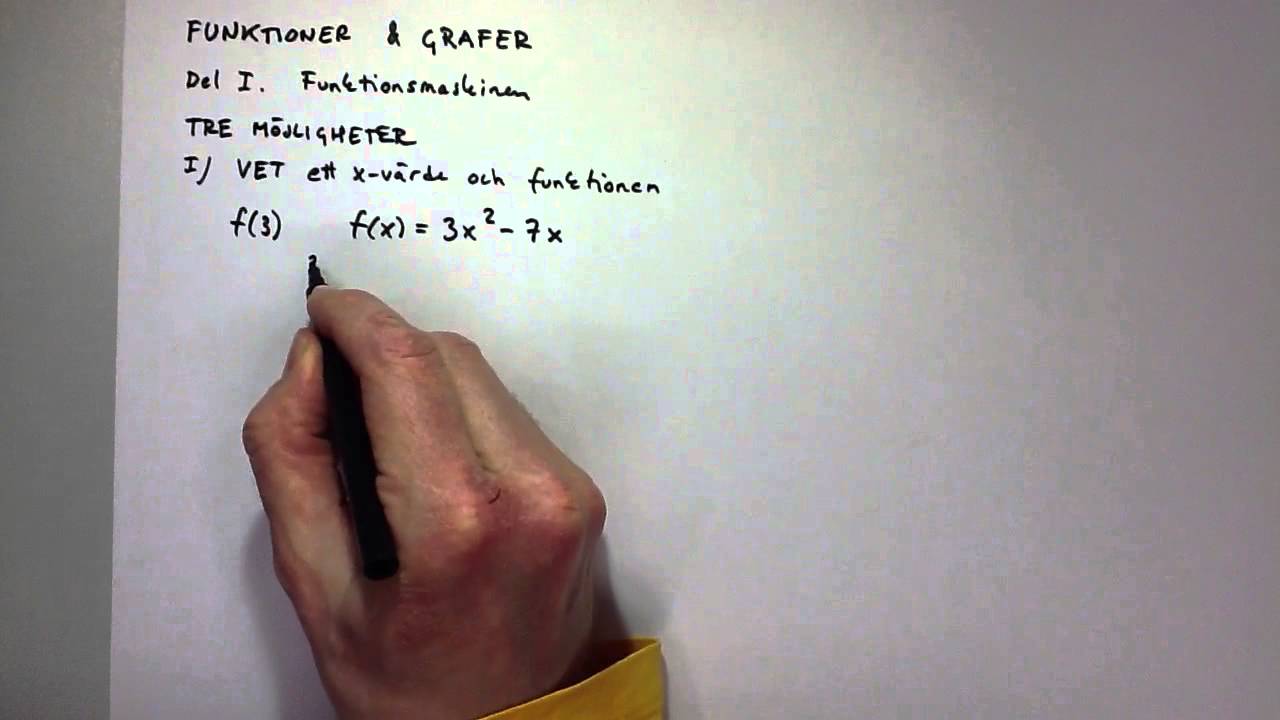 FUNKTIONER & GRAFER
Del I. Funktionsmaskinen
TRE MÖJLIGHETER
I) VET ett x-värde och funktionen
f(3) f(x) = 3x² - 7x